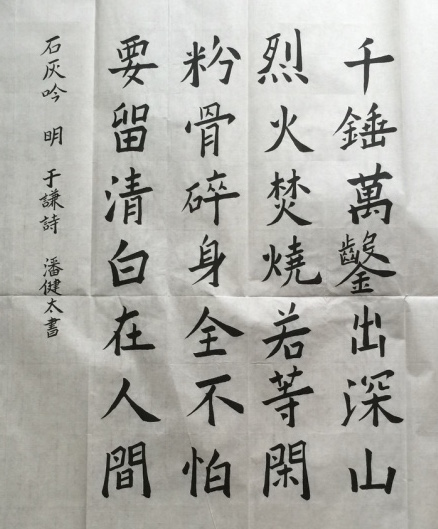 千錘萬鑿出深山
烈火焚燒若等閑
粉骨碎身全不怕
要留清白在人間
石灰吟 明 于謙詩 潘健太書